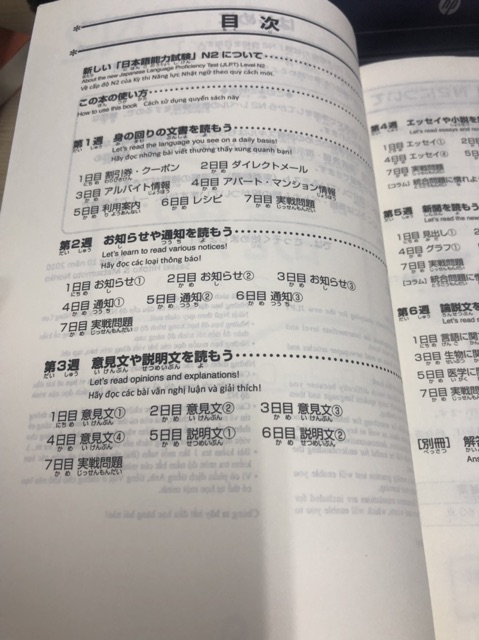 目次
新しい「日本語能力試験」N2について
About the new Japanese Language Proficiency Test (JLPT) Level N2
Về cấp độ N2 của Kỳ thi Năng lực Nhật ngữ theo quy cách mới.
この本の使い方
How to use this book Cách sử dụng quyển sách này
第1週 身の回りの文書を読もう
Let's read the language you see on a daily basis!
Hãy đọc những bài viết thường thấy xung quanh bạn!
1日目 割引券・クーポン 2日目 ダイレクトメール
3日目 アルバイト情報 4日目 アパート・マンション情報
5日目 利用案内 6日目 レシピ 7日目 実戦問題
第2週 お知らせや通知を読もう
Let's learn to read various notices!
Hãy đọc các loại thông báo!
1日目 お知らせ① 2日目 お知らせ② 3日目 お知らせ③
4日目 通知① 5日目 通知② 6日目 通知③
7日目 実戦問題
第3週 意見文や説明文を読もう
Let's read opinions and explanations!
Hãy đọc các bài văn nghị luận và giải thích!
1日目 意見文① 2日目 意見文② 3日目 意見文③
4日目 意見文④ 5日目 説明文① 6日目 説明文②
7日目 実戦問題
第4週 エッセイや小説を
Let's read essays and
1日目 エッセイ①
4日目 エッセイ④
7日目 実戦問題
[コラム] 統合問題に慣れよ
第5週 新聞を読もう
Let's read the new
1日目 見出し①
4日目 グラフ①
7日目 実戦問題
[コラム] 統合問題に慣
第6週 論説文を
Let's read
1日目 言語に関
3日目 生物に関
5日目 医学に関
7日目 実戦問題
[別冊] 解答